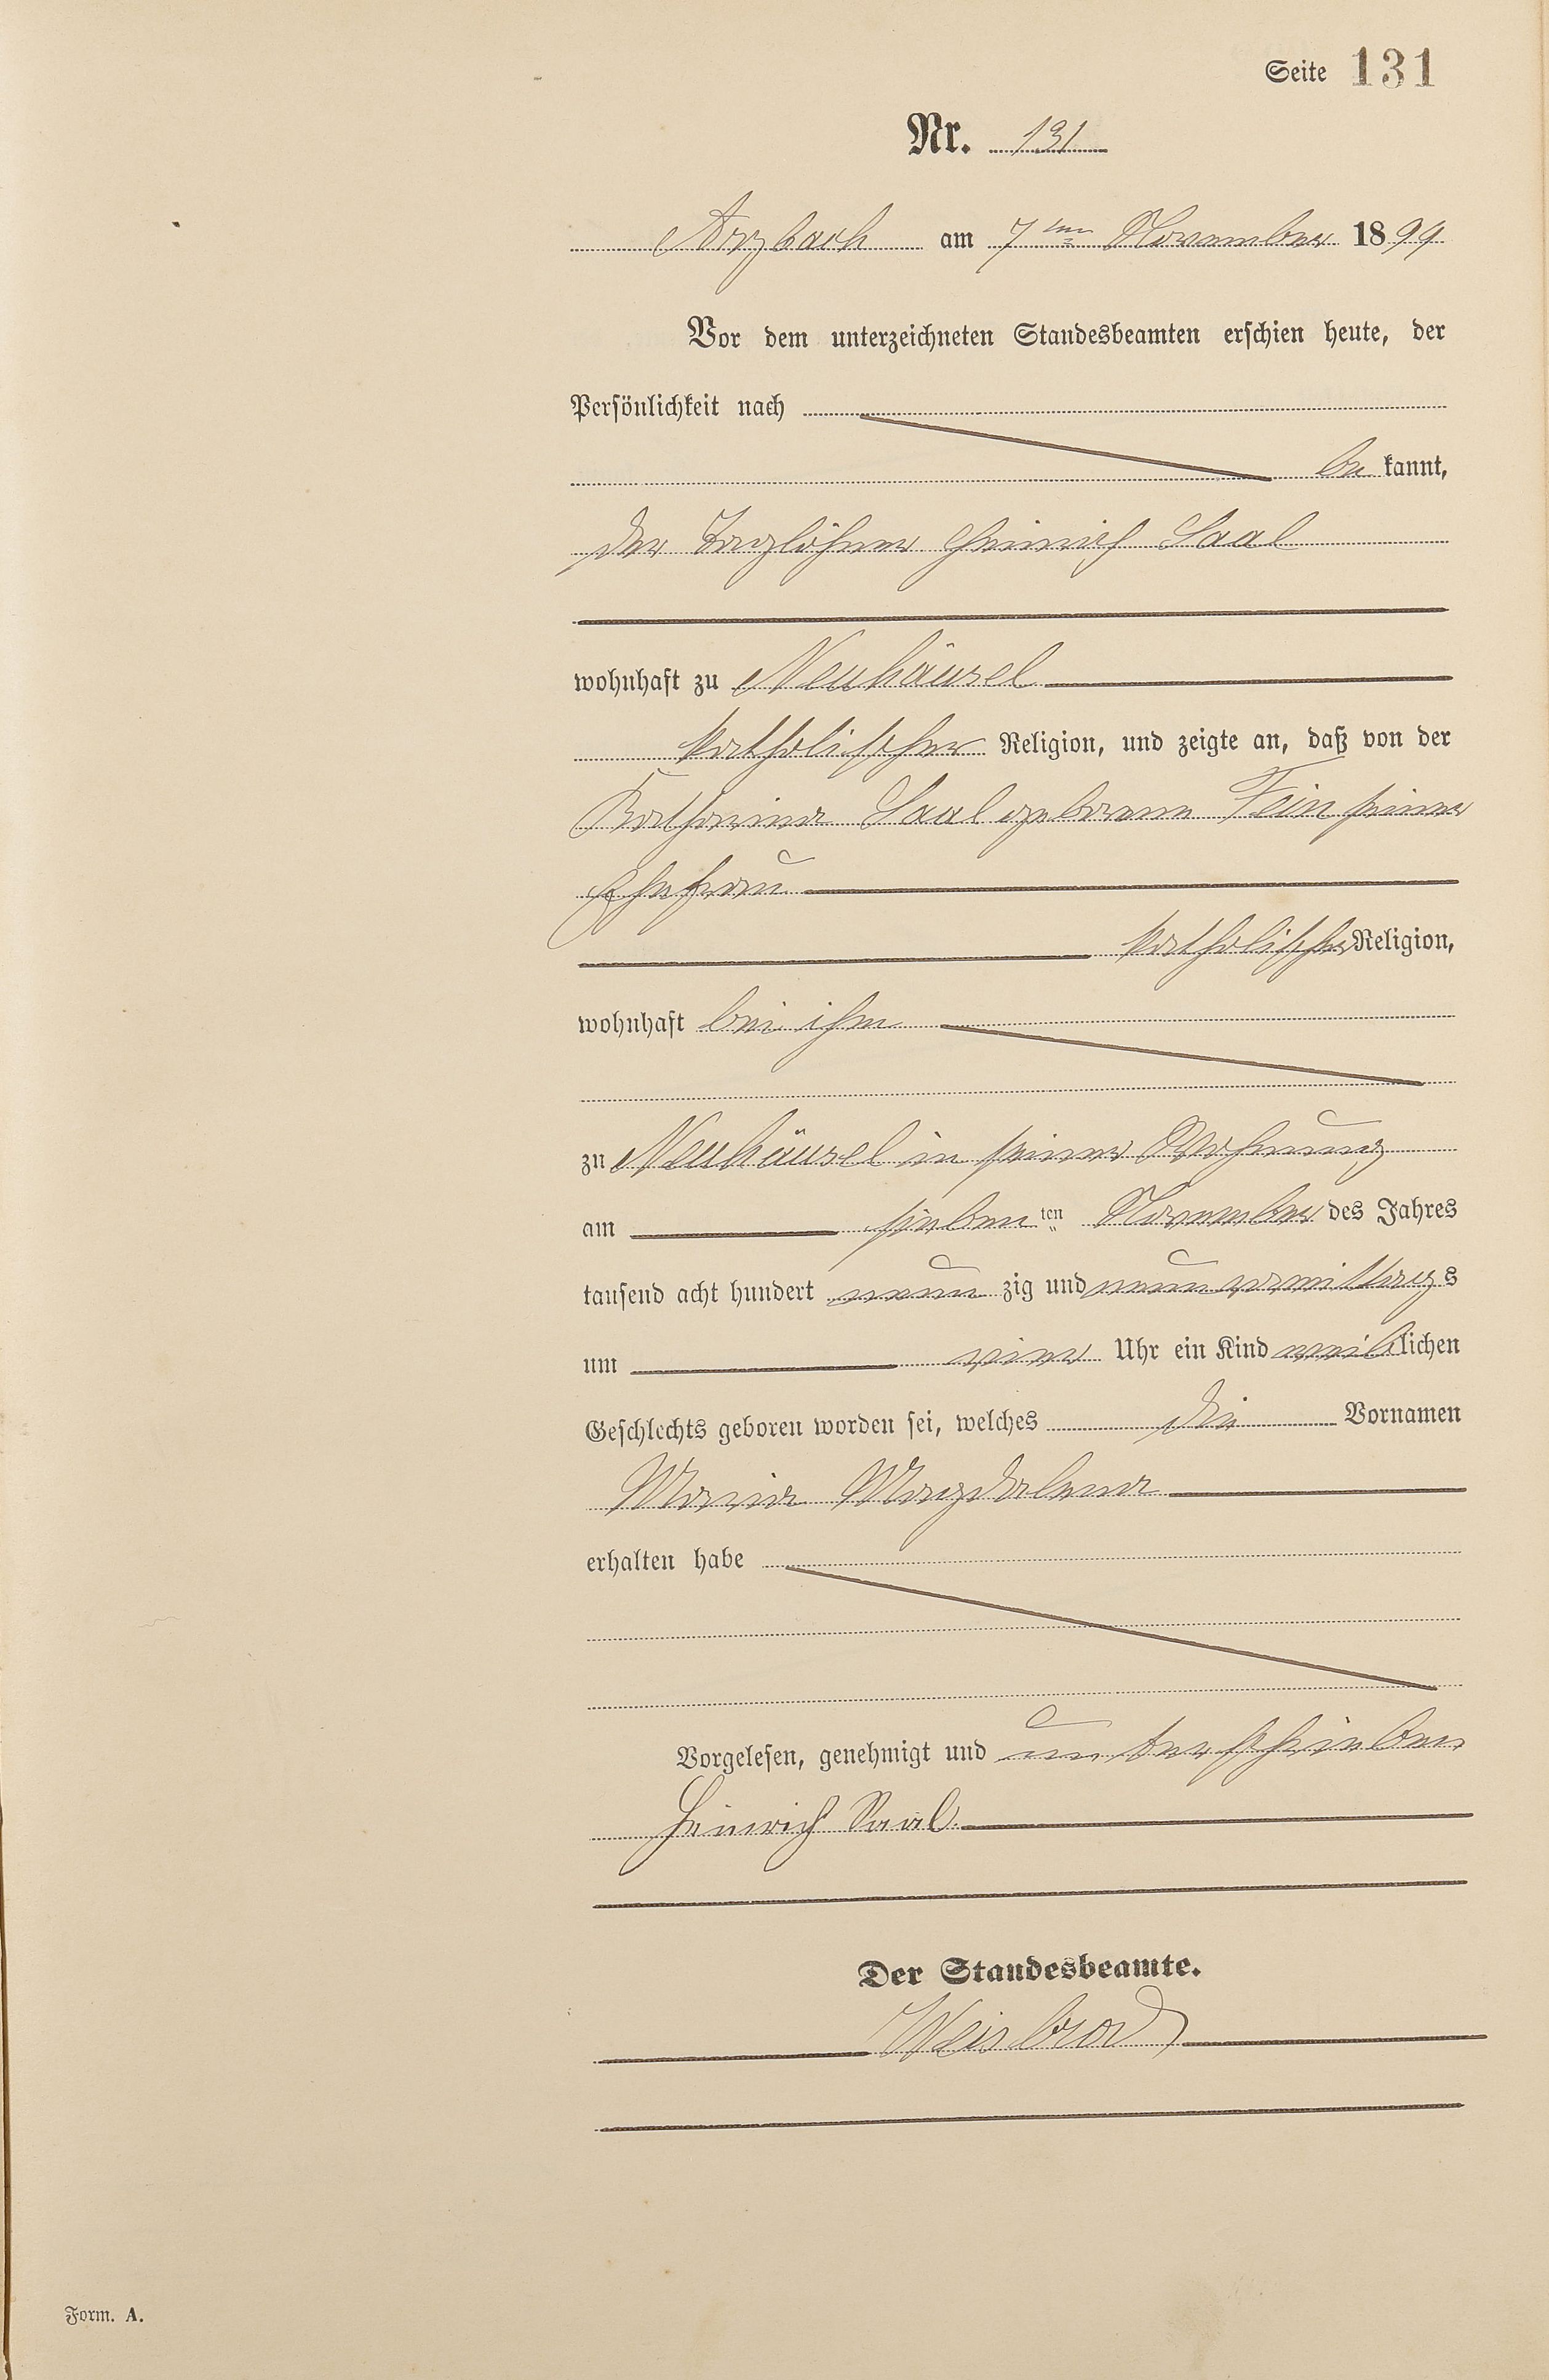 Seite 131
Nr. 131
Arzbach am 7ten November 1899
Vor dem unterzeichneten Standesbeamten erschien heute, der
Persönlichkeit nach
be kannt,
der Taglöhner Heinrich Saal
wohnhaft zu Neuhäusel
katholischer Religion, und zeigte an, daß von der
Katharina Saal geborene Fein seiner
Ehefrau
katholischer Religion,
wohnhaft bei ihm
zu Neuhäusel in seiner Wohnung
am sieben ten November des Jahres
tausend acht hundert neun zig und neun vormittags
um vier Uhr ein Kind weiblichen
Geschlechts geboren worden sei, welches die Vornamen
Maria Magdalena
erhalten habe
Vorgelesen, genehmigt und unterschrieben
Heinrich Saal.
Der Standesbeamte.
Weisbrod
Form. A.